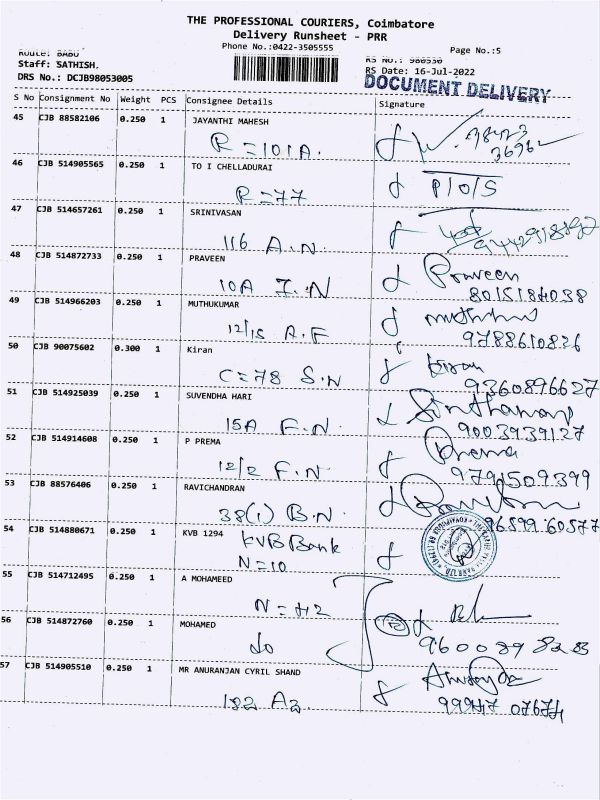 THE PROFESSIONAL COURIERS, Coimbatore
Delivery Runsheet - PRR
Phone No.:0422-3505555
Page No.:5
Route: BABU
Staff: SATHISH.
DRS No.: DCJB98053005
RS No.: 980530
RS Date: 16-Jul-2022
DOCUMENT DELIVERY
S No Consignment No Weight PCS Consignee Details Signature
45 CJB 88582106 0.250 1 JAYANTHI MAHESH
R = 101A.
46 CJB 514905565 0.250 1 TO I CHELLADURAI
R = 77 P/O/S
47 CJB 514657261 0.250 1 SRINIVASAN
116 A.N.
48 CJB 514872733 0.250 1 PRAVEEN
10A I.N Praveen
8015184038
49 CJB 514966203 0.250 1 MUTHUKUMAR
12/15 A.F
9788610826
50 CJB 90075602 0.300 1 Kiran
C=78 S.N Kiran
9360896627
51 CJB 514925039 0.250 1 SUVENDHA HARI
15A F.N.
9003939127
52 CJB 514914608 0.250 1 P PREMA
12/2 F.N. Prema
9791509399
53 CJB 88576406 0.250 1 RAVICHANDRAN
38(1) B.N.
96599 60577
54 CJB 514880671 0.250 1 KVB 1294
KVB Bank
N=10
55 CJB 514712495 0.250 1 A MOHAMEED
N = H2
56 CJB 514872760 0.250 1 MOHAMED
do
57 CJB 514905510 0.250 1 MR ANURANJAN CYRIL SHAND
99947 07674